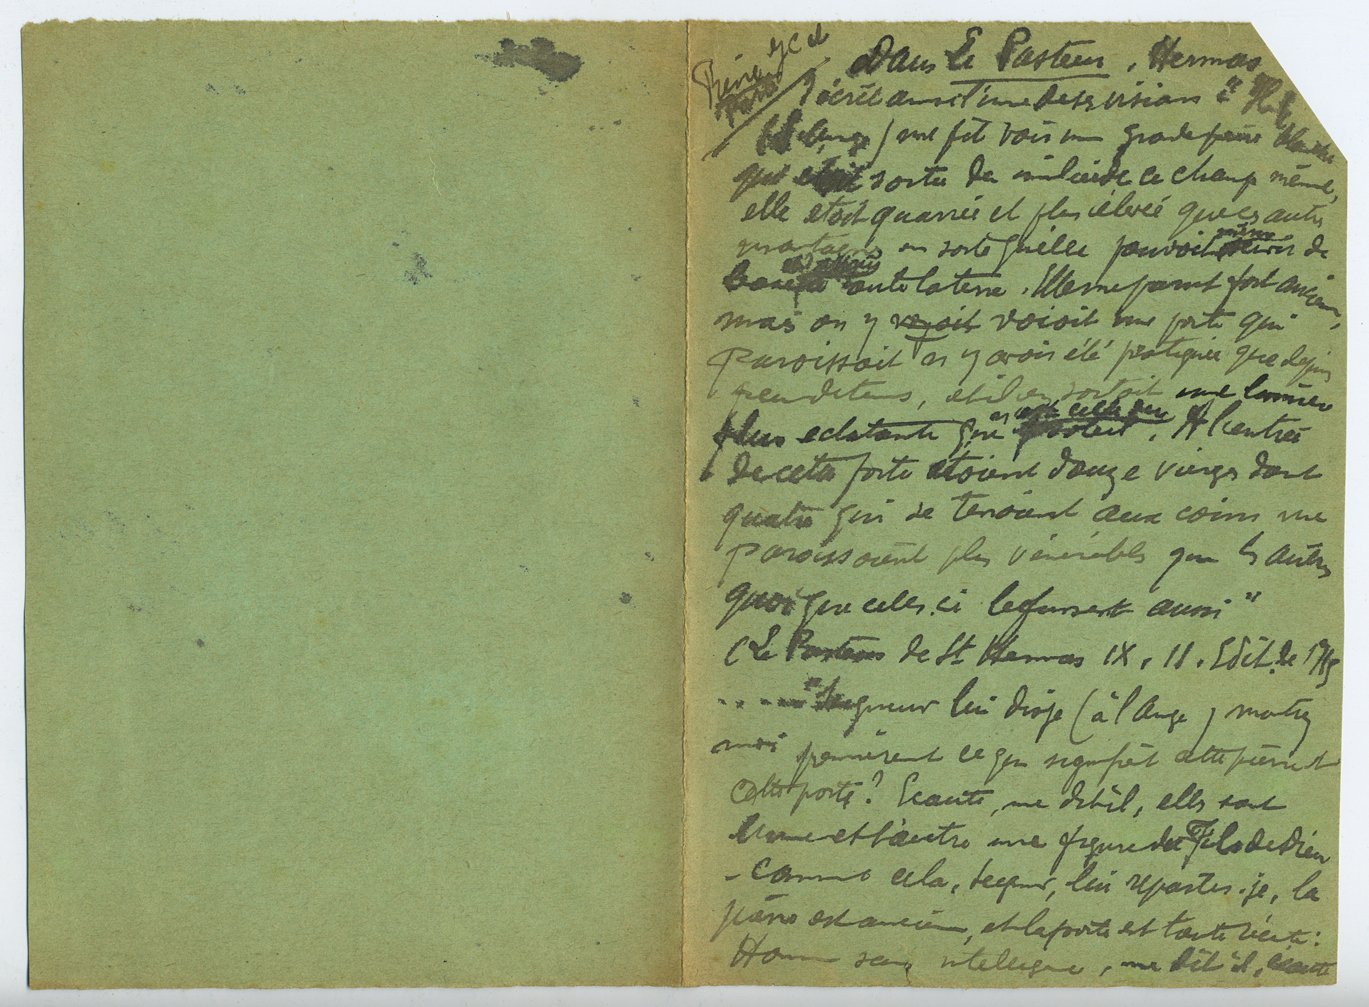 Pierre
Dans Le Pasteur, Hermas
décrit ainsi l'une de ses visions : " Il
(l'Ange) me fit voir une grande pierre blanche
qui était sortie du milieu de ce champ même,
elle étoit quarrée et plus élevée que les autres
montagnes en sorte qu'elle pouvoit de
toute la terre. Elle me parut fort ancienne,
mais on y voioit une porte qui
paroissoit n'y avoir été pratiquée que depuis
peu de tems, et il en sortoit une lumière
plus eclatante que celle du soleil. A l'entrée
de cette porte étoient douze vierges dont
quatre qui se tenoient aux coins me
paroissoient plus vénérables que les autres
quoique celles ci le fussent aussi "
(Le Pasteur de St Hermas IX. II. Edit. de
..... " Seigneur lui dis-je (à l'Ange) montrez
moi ce que signifient cette pierre et
cette porte ? Ecoute, me dit-il, elles sont
l'une et l'autre une figure du Fils de Dieu
- Comme cela, Seigneur, lui repartis-je, la
pierre est ancienne, et la porte est toute récente :
Homme sans intelligence, me dit-il, écoute